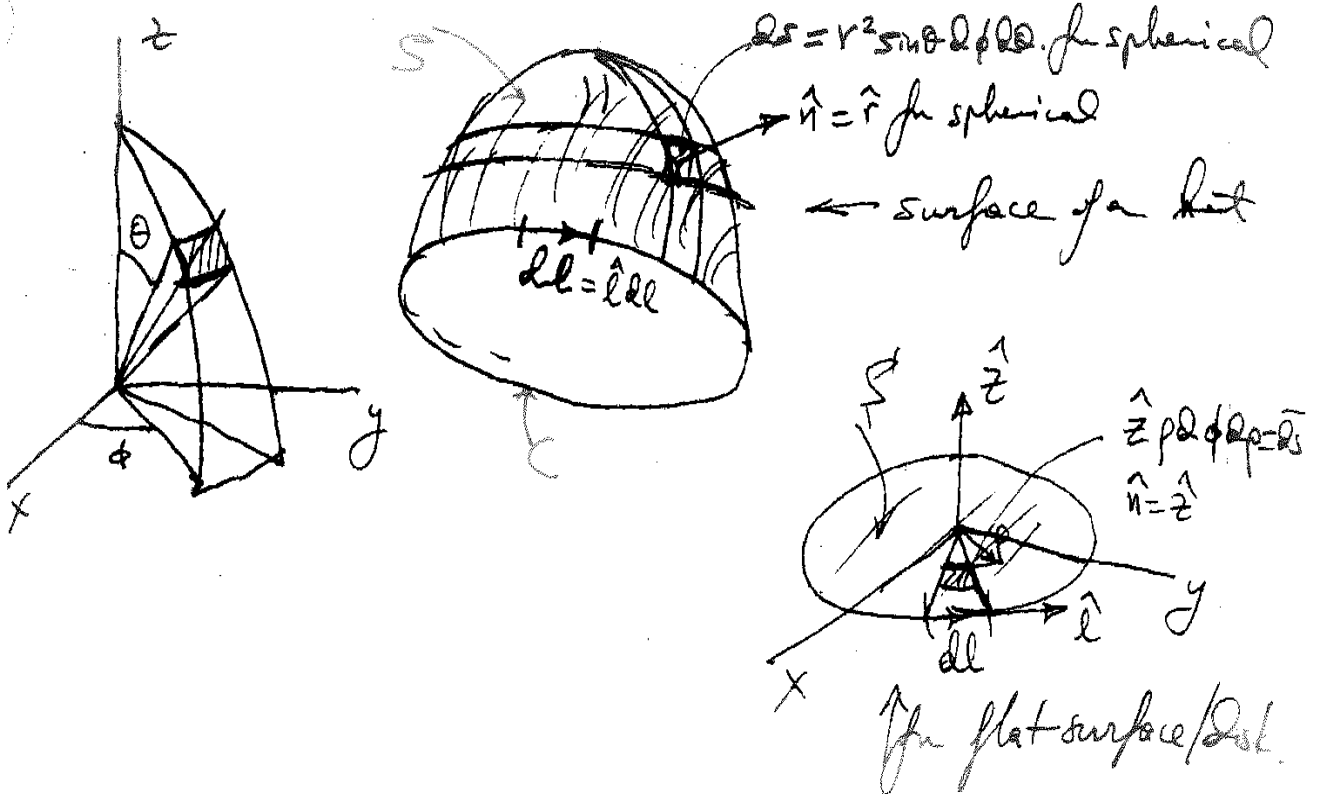 z
θ
x
y
φ
S
ds = r² sinθ dφ dθ. for spherical
n̂ = r̂ for spherical
← surface of a hat
dl = l̂ dl
C
S
ẑ
ẑ ρ dφ dρ = ds̄
n̂ = ẑ
ρ
y
x
l̂
dl
↑ for flat surface/disk.